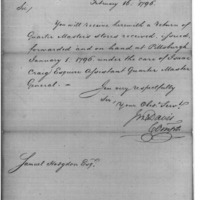 February 16. 1796.
Sir,
You will receive herewith a return of
Quarter Master's stores received, issued,
forwarded and on hand at Pittsburgh
January 1. 1796. under the care of Isaac
Craig Esquire Assistant Quarter Master
General. —
I am very respectfully
Sir
Your Obt. Servt.
Samuel Hodgdon Esqr.